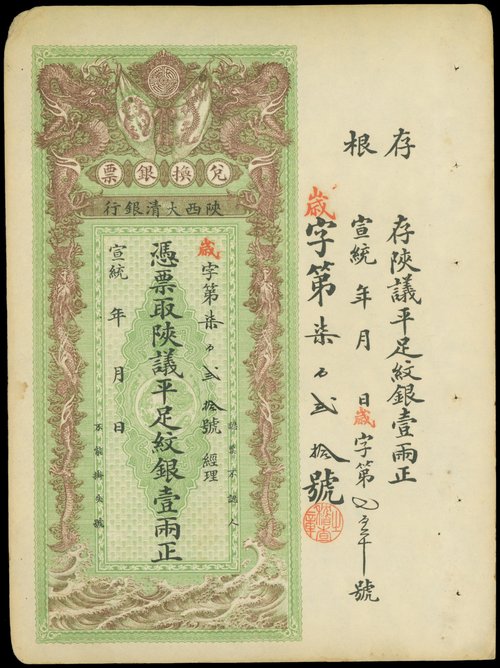 存根
存陝議平足紋銀壹兩正
宣統 年 月 日 歲字第 號
歲字第柒百弍拾號
兌換銀票
陝西大清銀行
認票不認人
歲字第柒百弍拾號 經理
憑票取陝議平足紋銀壹兩正
宣統 年 月 日